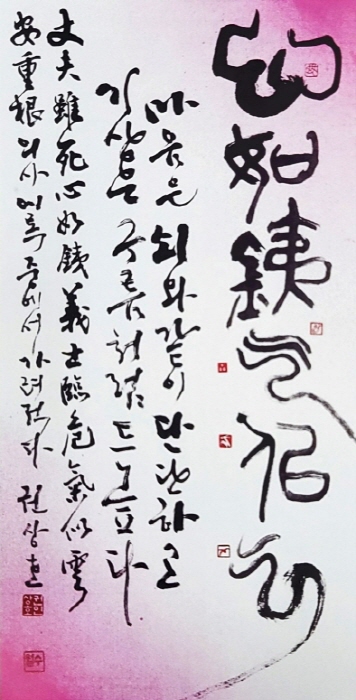 心如銕气佀云
마음은 쇠와 같이 단단하고
기상은 구름처럼 드높다
丈夫雖死心如銕義士臨危氣似雲
安重根 의사 어록 중에서 가려 적다 권상호